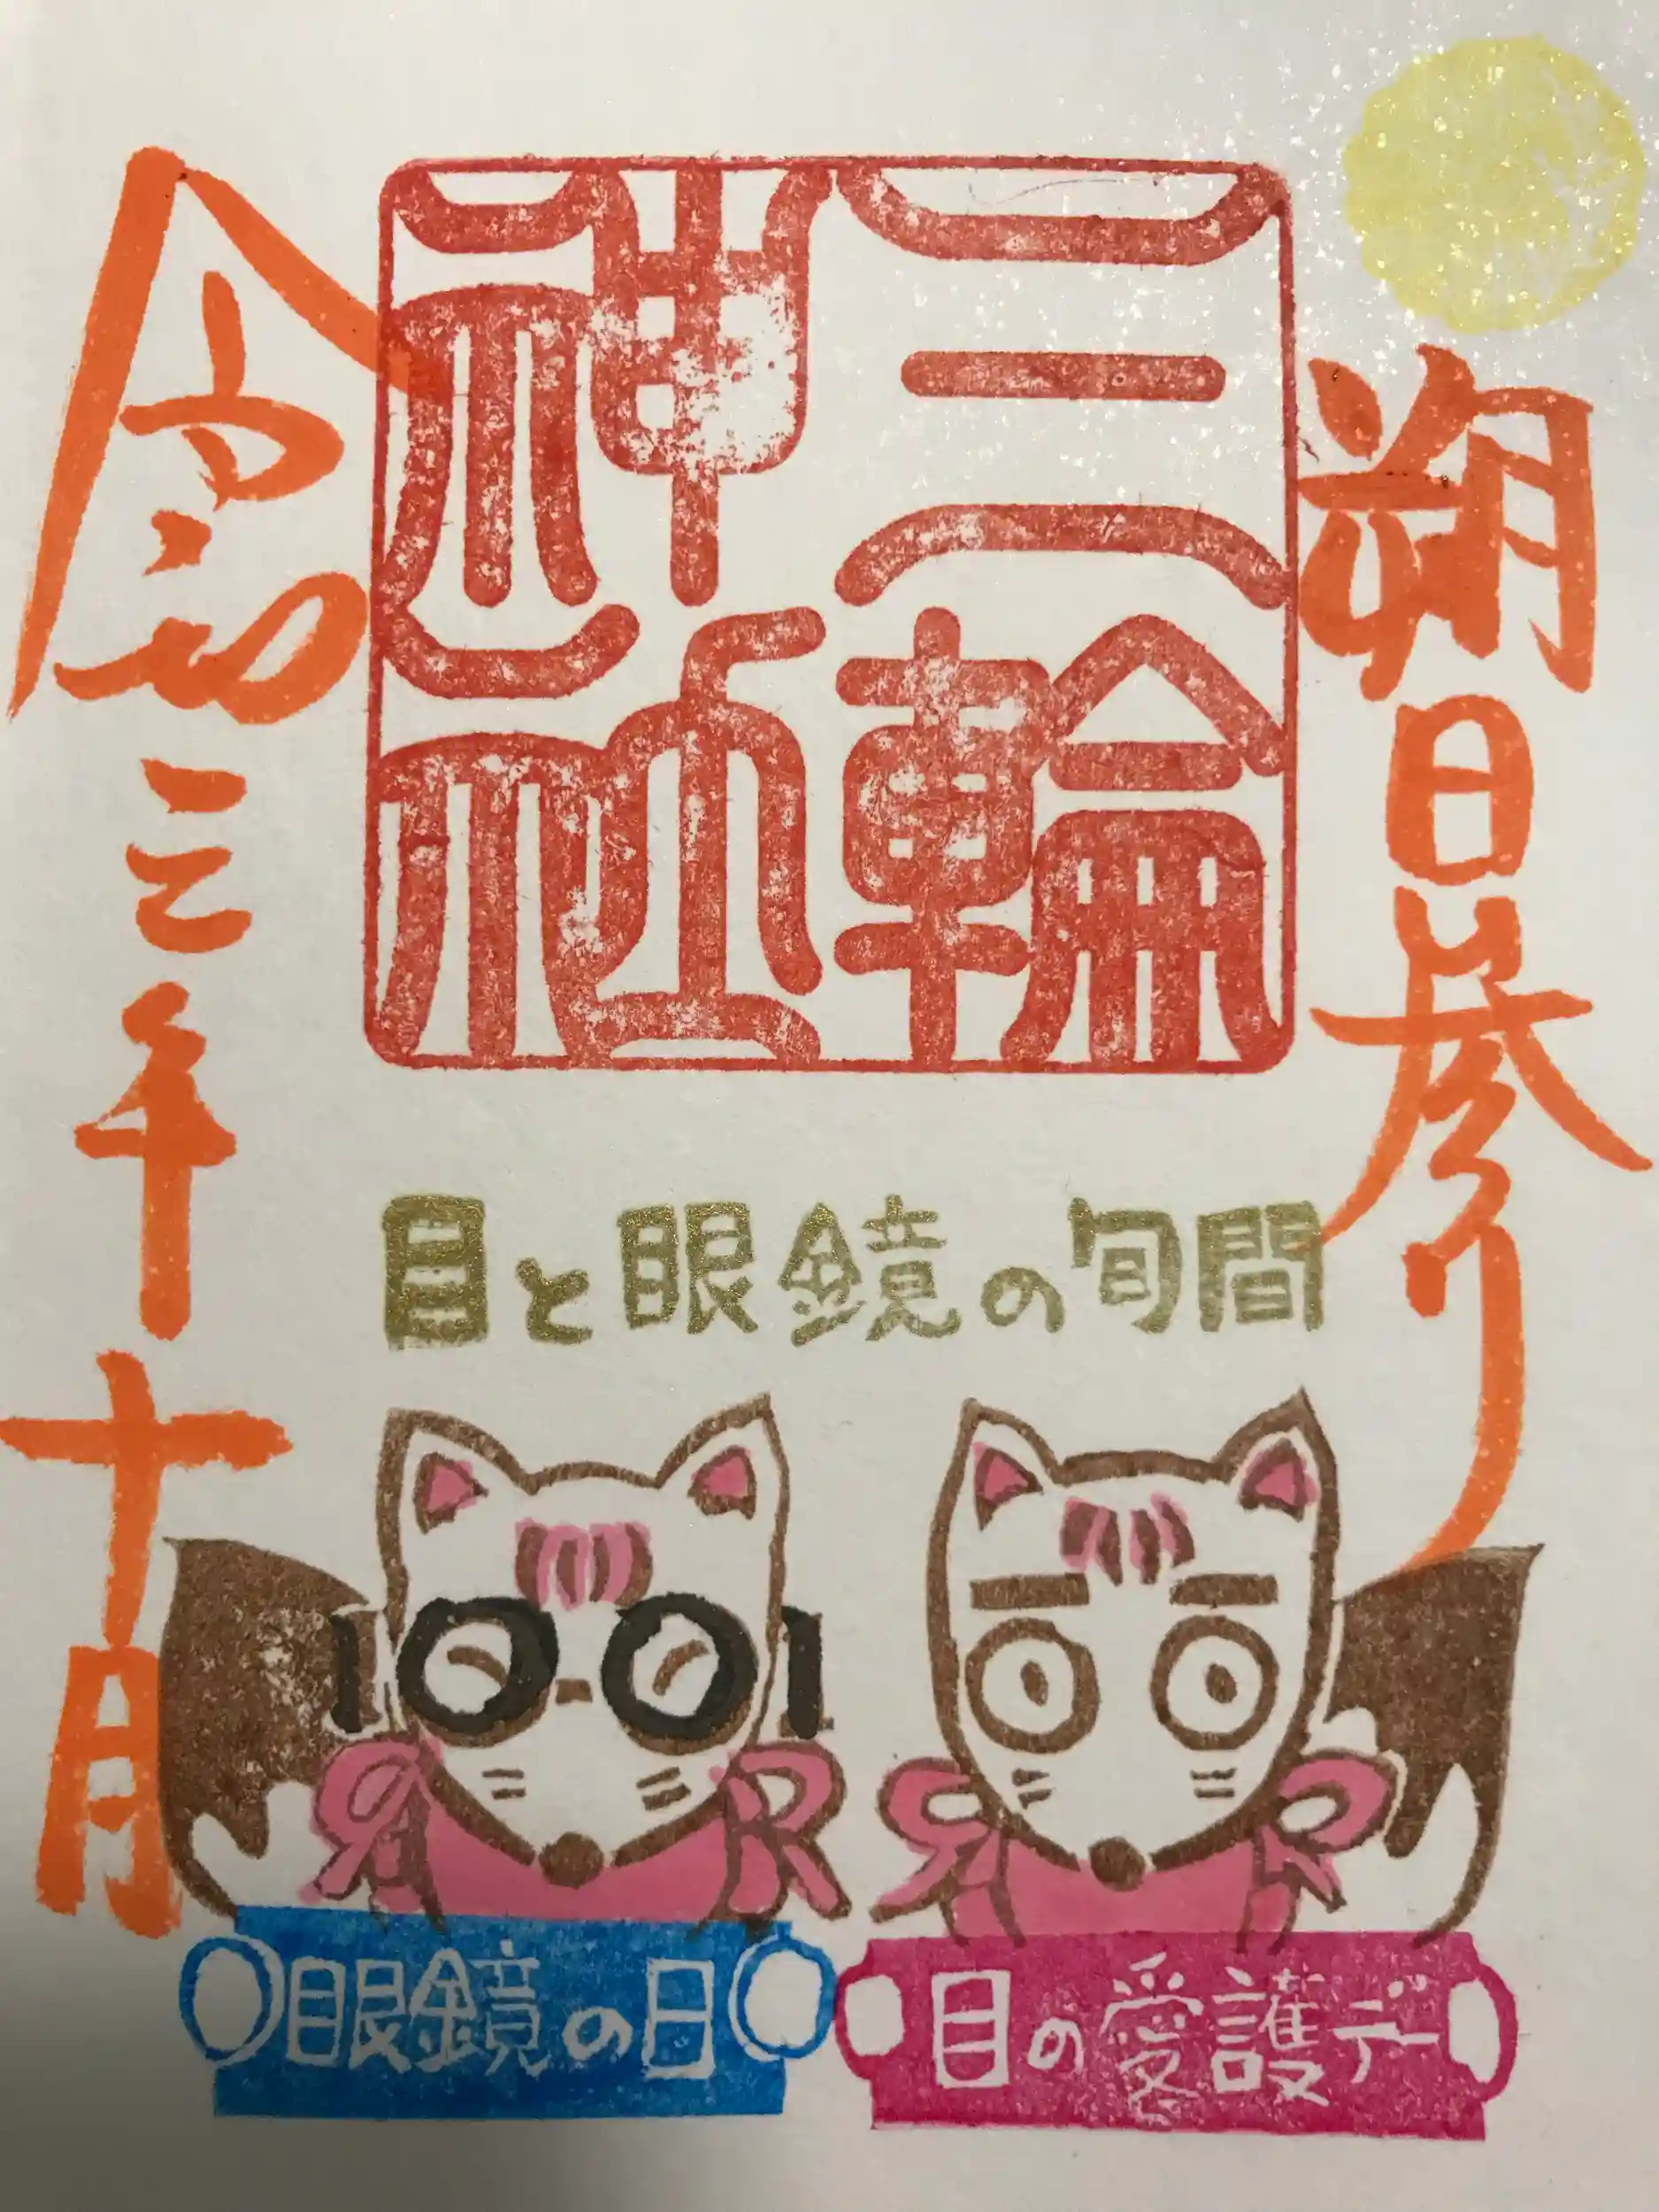 朔日参り
三輪
神社
令和三年十月
目と眼鏡の旬間
1001
眼鏡の日
目の愛護デー